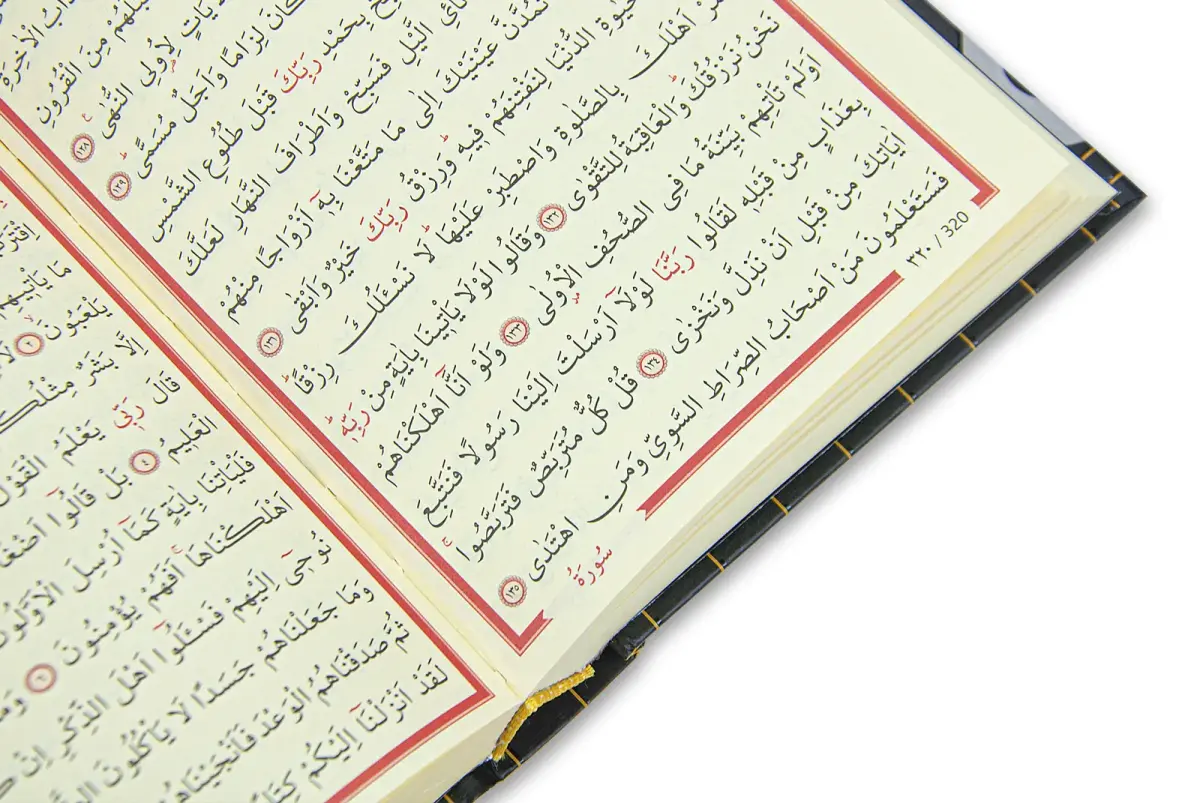 الْاٰخِرَةِ
مِنَ الْقُرُونِ
لِاُولِى النُّهٰى ﴿١٢٨﴾
كَانَ لِزَامًا وَاَجَلٌ مُسَمًّى ﴿١٢٩﴾
بِحَمْدِ رَبِّكَ قَبْلَ طُلُوعِ الشَّمْسِ
الَّيْلِ فَسَبِّحْ وَاَطْرَافَ النَّهَارِ لَعَلَّكَ
تَمُدَّنَّ عَيْنَيْكَ اِلٰى مَا مَتَّعْنَا بِهٖٓ اَزْوَاجًا مِنْهُمْ
الدُّنْيَا لِنَفْتِنَهُمْ فِيهِ وَرِزْقُ رَبِّكَ خَيْرٌ وَاَبْقٰى ﴿١٣١﴾
اَهْلَكَ بِالصَّلٰوةِ وَاصْطَبِرْ عَلَيْهَا لَا نَسْـَٔلُكَ رِزْقًا
نَحْنُ نَرْزُقُكَ وَالْعَاقِبَةُ لِلتَّقْوٰى ﴿١٣٢﴾ وَقَالُوا لَوْلَا يَاْتِينَا بِاٰيَةٍ مِنْ رَبِّهٖ
اَوَلَمْ تَاْتِهِمْ بَيِّنَةُ مَا فِى الصُّحُفِ الْاُولٰى ﴿١٣٣﴾ وَلَوْ اَنَّٓا اَهْلَكْنَاهُمْ
بِعَذَابٍ مِنْ قَبْلِهٖ لَقَالُوا رَبَّنَا لَوْلَٓا اَرْسَلْتَ اِلَيْنَا رَسُولًا فَنَتَّبِعَ
اٰيَاتِكَ مِنْ قَبْلِ اَنْ نَذِلَّ وَنَخْزٰى ﴿١٣٤﴾ قُلْ كُلٌّ مُتَرَبِّصٌ فَتَرَبَّصُوا
فَسَتَعْلَمُونَ مَنْ اَصْحَابُ الصِّرَاطِ السَّوِىِّ وَمَنِ اهْتَدٰى ﴿١٣٥﴾
٣٢٠ / 320
سُورَةُ
مَا يَاْتِيهِمْ
يَلْعَبُونَ ﴿٢﴾
اِلَّا بَشَرٌ
قَالَ رَبِّى يَعْلَمُ الْقَوْلَ
الْعَلِيمُ ﴿٤﴾ بَلْ قَالُٓوا
فَلْيَاْتِنَا بِاٰيَةٍ كَمَٓا اُرْسِلَ الْاَوَّلُونَ
اَهْلَكْنَاهَا اَفَهُمْ يُؤْمِنُونَ ﴿٦﴾
نُوحِٓى اِلَيْهِمْ فَسْـَٔلُٓوا اَهْلَ الذِّكْرِ اِنْ
وَمَا جَعَلْنَاهُمْ جَسَدًا لَا يَاْكُلُونَ
ثُمَّ صَدَقْنَاهُمُ الْوَعْدَ فَاَنْجَيْنَاهُمْ
لَقَدْ اَنْزَلْنَٓا اِلَيْكُمْ